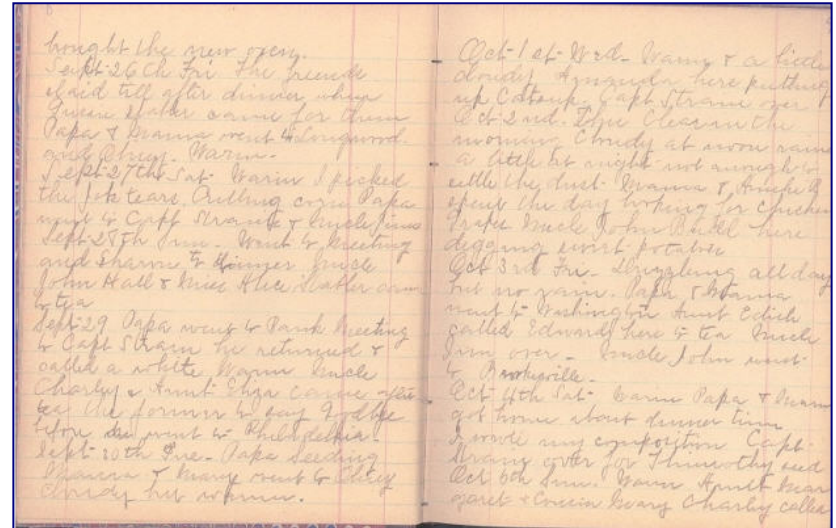 bought the new oxen.
Sept-26th Fri The friends
staid till after dinner when
came for them
Papa & Mama went to Longwood
and Olney. Warm.
Sept-27th Sat- Warm I picked
the Cutting corn Papa
went to Capt Strain & Uncle Jims
Sept-28th Sun- Went to Meeting
and Sharon to dinner Uncle
John Hall & Miss Alice came
to tea
Sept-29 Papa went to Bank Meeting
to Capt Strain he returned &
called a while Warm Uncle
Charley & Aunt Eliza came after
tea the former to say Goodbye
before he went to Philadelphia-
Sept-30th Tue- Papa Seeding
Mama & Mary went to Olney
Cloudy but warmer.
Oct-1st-Wed- Warm & a little
cloudy Amanda here putting
up Catsup. Capt Strain over
Oct-2nd. Thu Clear in the
morning Cloudy at noon rain
a little at night not enough to
settle the dust- Mama &
spent the day looking for chicken
grapes Uncle John here
digging sweet potatoes
Oct 3rd Fri- Drizzling all day
but no rain. Papa & Mama
went to Washington Aunt Edith
called Edward here to tea Uncle
Jim over- Uncle John went
to
Oct-4th Sat- Warm Papa & Mama
got home about dinner time
I wrote my composition Capt-
Strain over for Timothy seed
Oct 5th Sun- Warm Aunt Mar
garet & Cousin Mary Charley called